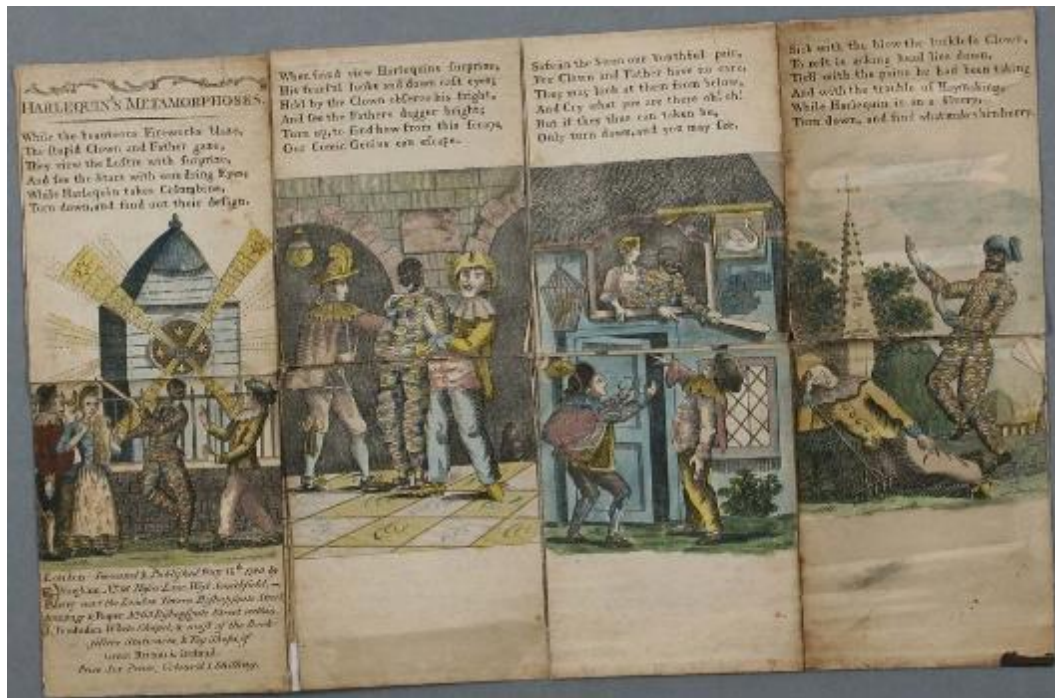 HARLEQUIN'S METAMORPHOSES.
While the beauteous Fireworks blaze,
The stupid Clown and Father gaze,
They view the Lustre with surprize,
And see the Stars with wondring Eyes;
While Harlequin takes Columbine,
Turn down, and find out their design.
London
Published May 15th by
West Smithfield,
near the London Tavern Bishopsgate Street
Bishopsgate Street within
White Chapel, & most of the Book
sellers Stationers, & Toy Shops, of
Great Britain & Ireland
Price Six Pence, Coloured 1 Shilling.
When seiz'd view Harlequins surprize,
His fearful looks and down cast eyes;
Held by the Clown observe his fright,
And see the Fathers dagger bright;
Turn up, to find how from this scrape,
Our Comic Genius can escape.
Safe in the Swan our Youthful pair,
For Clown and Father have no care,
They may look at them from below,
And Cry what you are there oh! oh!
But if they thus can taken be,
Only turn down, and you may see,
Sick with the blow the luckless Clown,
To rest is aking head lies down,
Tir'd with the pains he had been taking
And with the trouble of Haymaking,
While Harlequin is in a
Turn down, and find what makes him